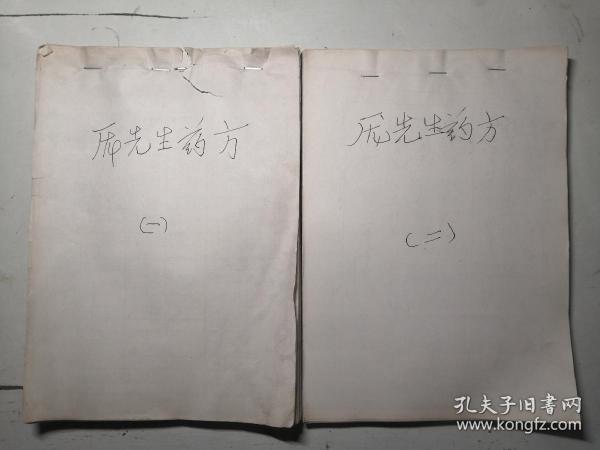 先生药方
(一)
先生药方
(二)
孔夫子旧書网
www.kongfz.com